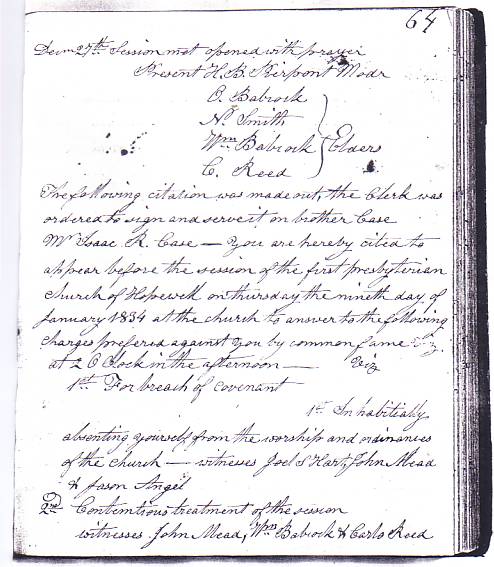 64
Decm 27th Session met opened with prayer
Present H. B. Pierpont Modr
O. Babcock
N. Smith
Wm Babcock Elders
C. Reed
The following citation was made out, the Clerk was
ordered to sign and serve it on brother Case
Mr Isaac R. Case — You are hereby cited to
appear before the session of the first presbyterian
church of Hopewell on thursday the nineth day of
January 1834 at the church to answer to the following
charges prefered against you by common fame viz
at 2 O Clock in the afternoon — Viz
1st For breach of covenant
1st In habitially
absenting yourself from the worship and ordinances
of the church — witnesses Joel S Hart, John Mead
& Jason Angel
2nd Contimtious treatment of the session
witnesses John Mead, Wm Babcock & Carlo Reed